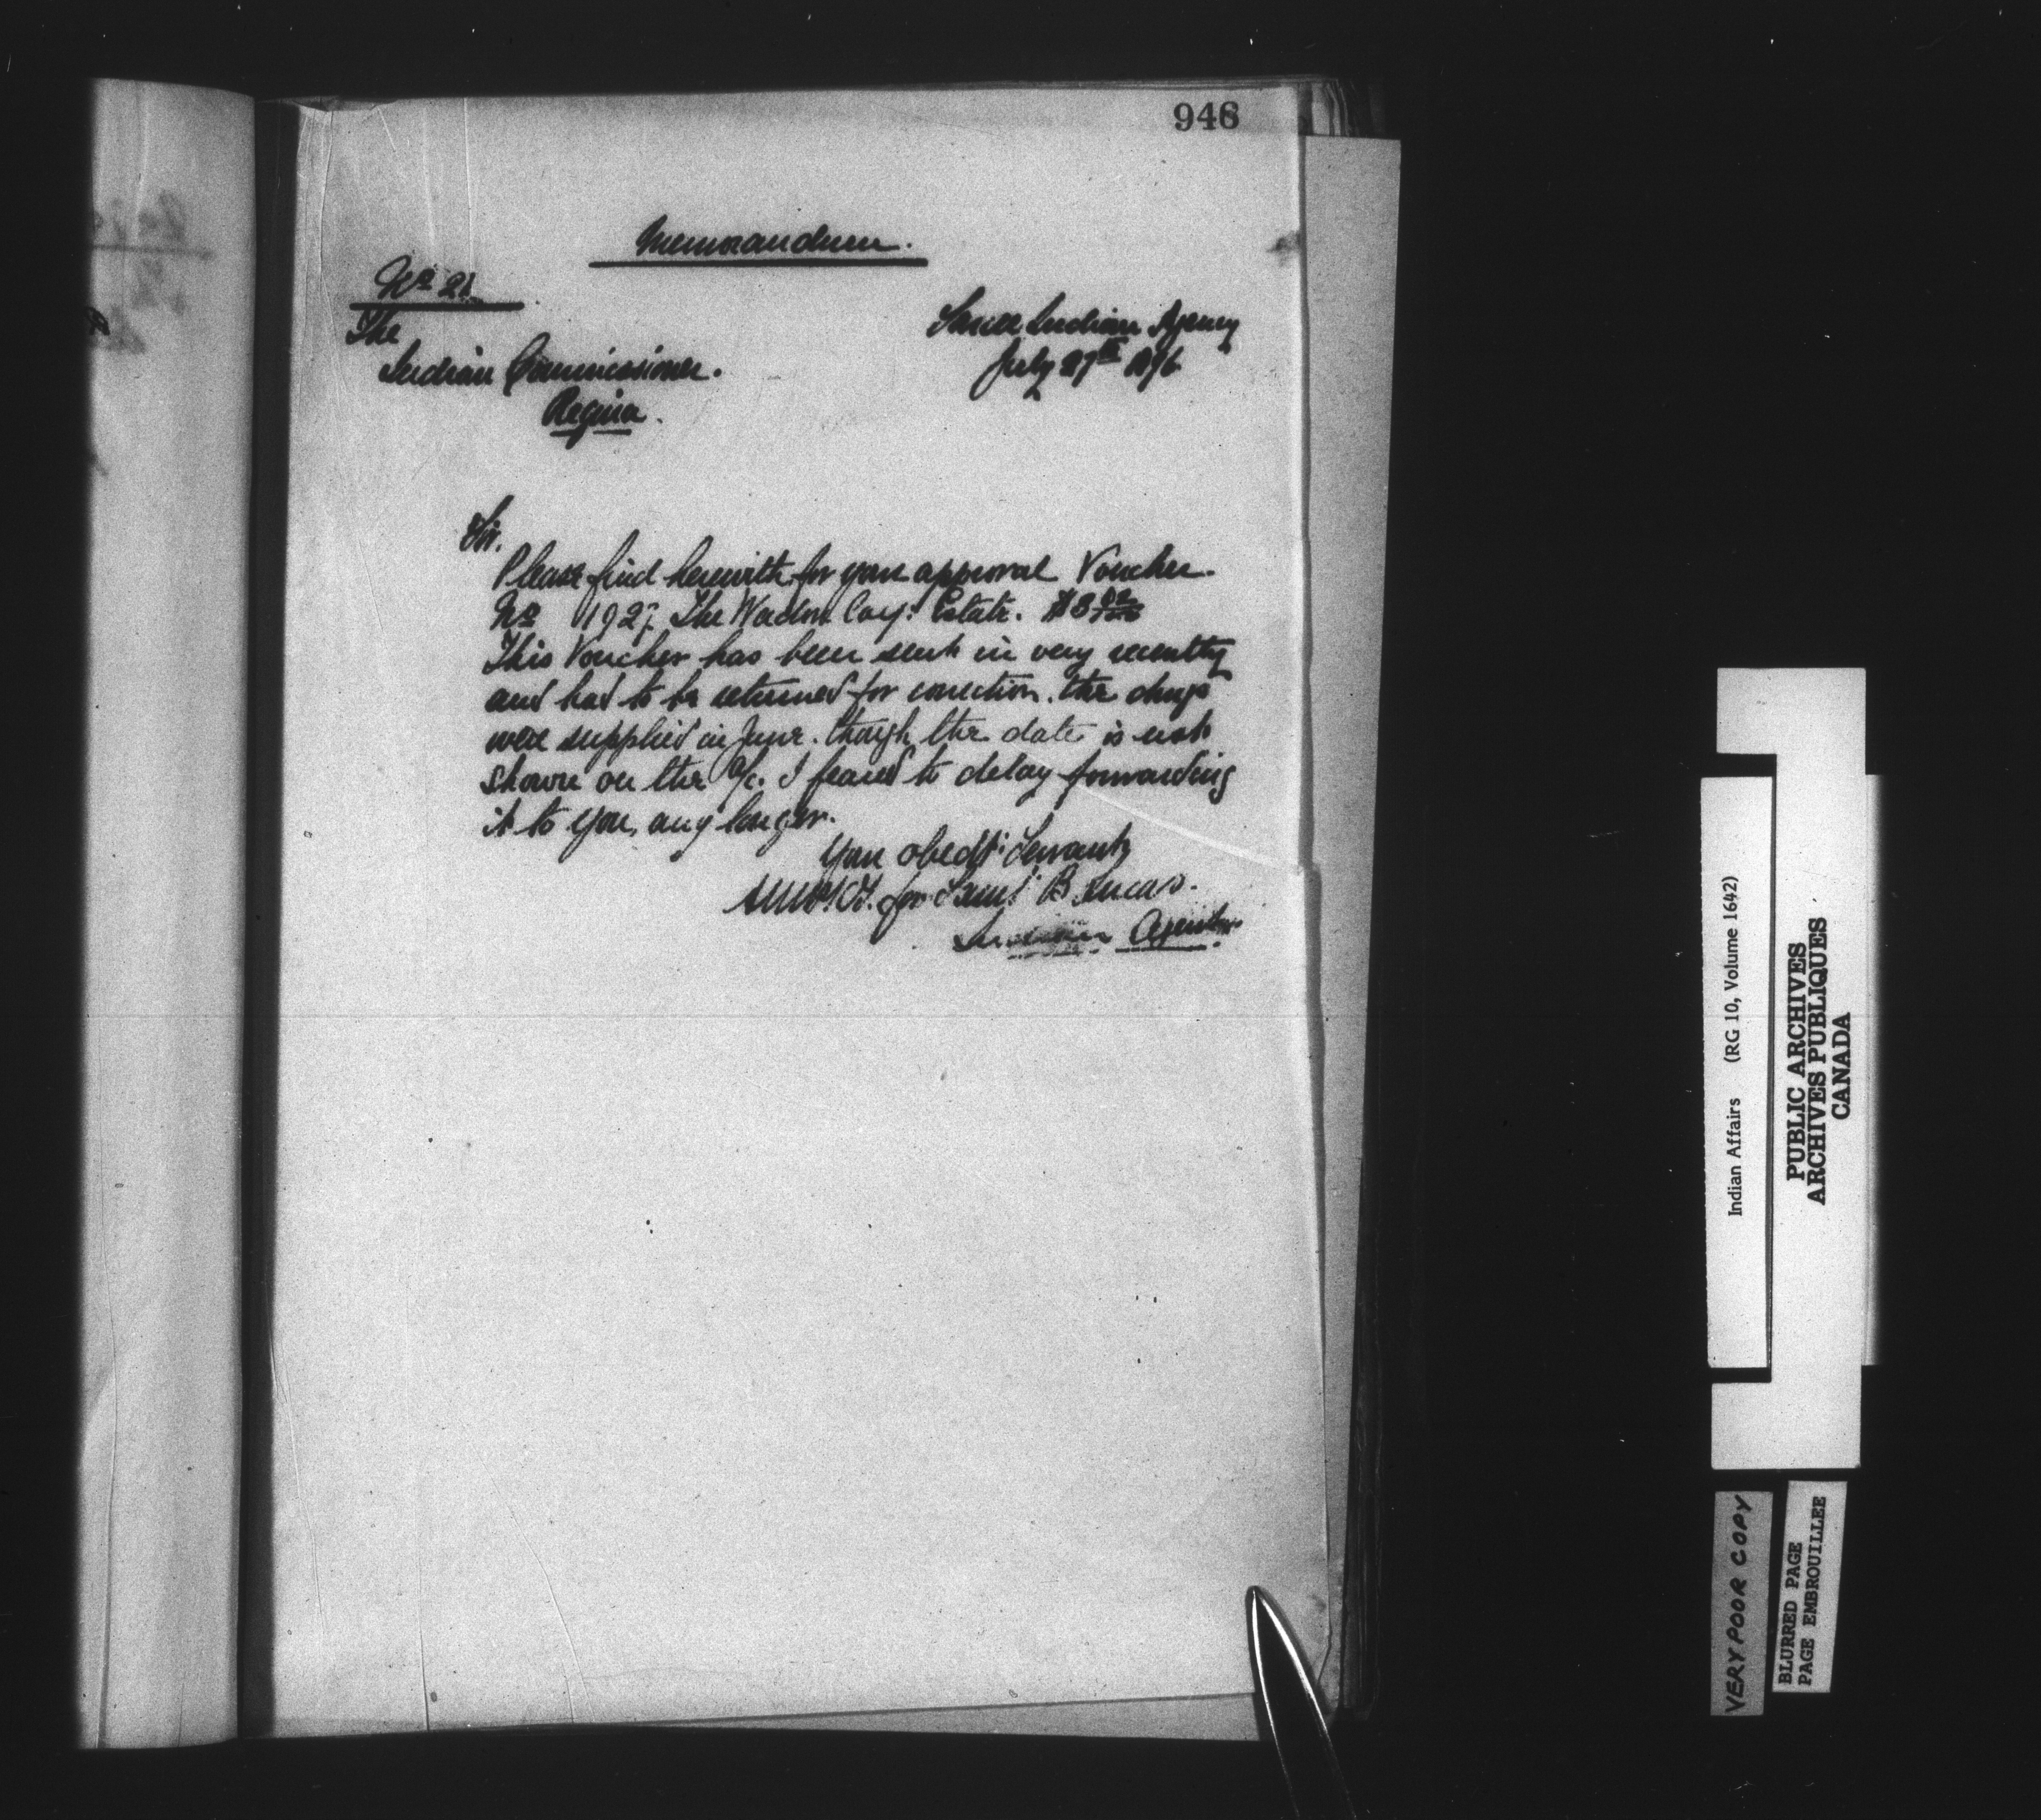 946
Memorandum.
No 21
The
Indian Commissioner.
Regina.
Sarcee Indian Agency
July 27th 1896
Sir.
Please find herewith for your approval Voucher.
No 1927. The Coy: Estate. $3
This Voucher has been sent in very recently
and had to be returned for correction. the drugs
were supplied in June. though the date is not
shown on the a/c. I feared to delay forwarding
it to you, any longer.
Your obedt: Servant
for Saml B Lucas.
Indian Agent
Indian Affairs (RG 10, Volume 1642)
PUBLIC ARCHIVES
ARCHIVES PUBLIQUES
CANADA
VERY POOR COPY
BLURRED PAGE
PAGE EMBROUILLEE